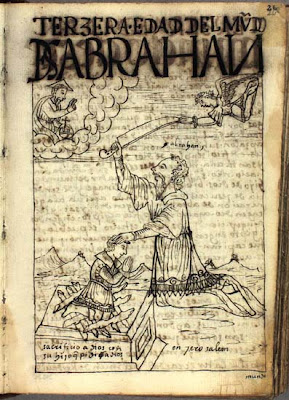 TERZERA·EDAD·DEL MV̄DO
DEABRAHAN
abrahan
sacrificio a dios con
su hijo q̄
dios
en jerosalen
mundo